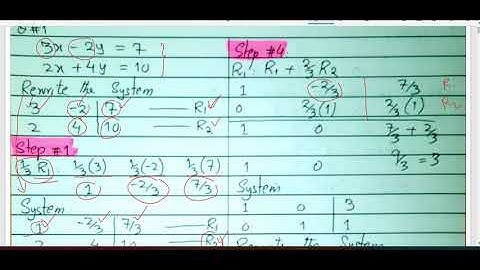 Q#1
3x - 2y = 7
2x + 4y = 10
Rewrite the System
3 -2 7 — R₁ ✓
2 4 10 — R₂ ✓
Step #1
1/3 R₁ 1/3(3) 1/3(-2) 1/3(7)
1 -2/3 7/3
System
1 -2/3 7/3 — R₁
2 4 10 — R₂
Step #4
R₁: R₁ + 2/3 R₂
1 -2/3 7/3 R₁
0 2/3(1) 2/3(1) R₂
1 0 7/3 + 2/3
1 0 9/3 = 3
System
1 0 3
0 1 1
Rewrite the System